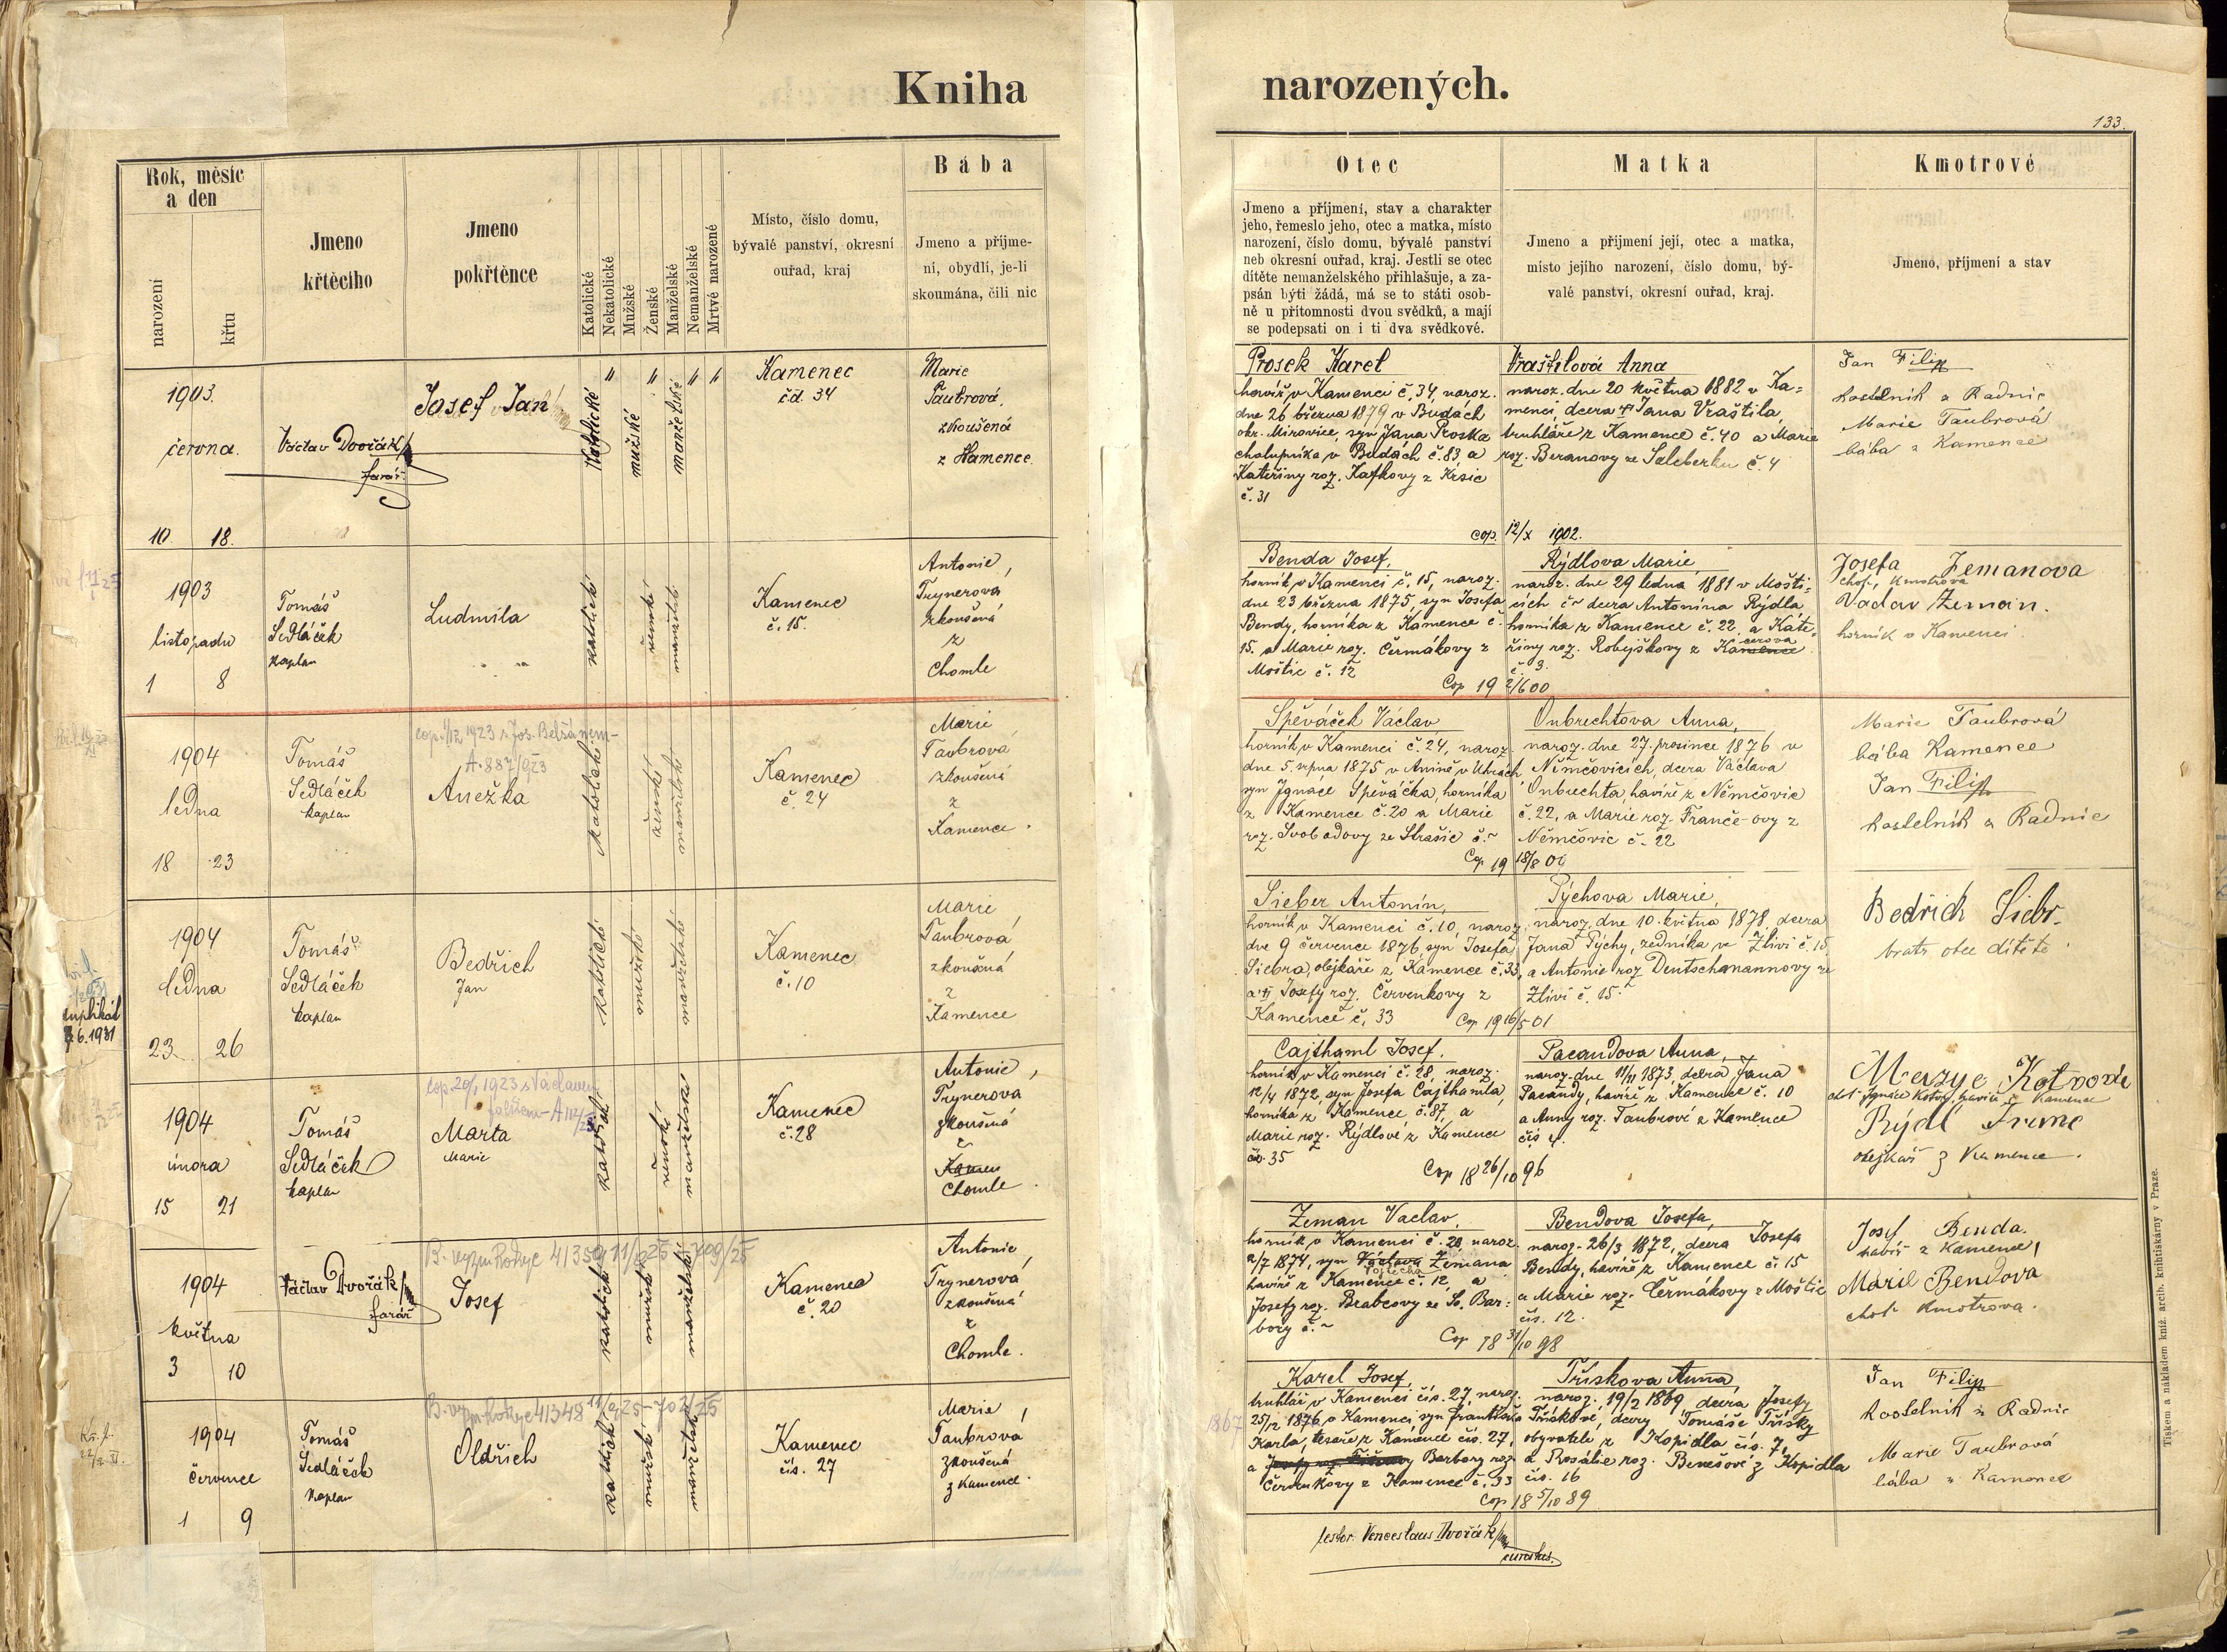 Kniha
narozených.
133.
Rok, měsíc
a den
narození
křtu
Jmeno
křtěcího
Jmeno
pokřtěnce
Katolické
Nekatolické
Mužské
Ženské
Manželské
Nemanželské
Mrtvé narozené
Místo, číslo domu,
bývalé panství, okresní
ouřad, kraj
Bába
Jmeno a příjme-
ní, obydlí, je-li
skoumána, čili nic
Otec
Jmeno a příjmení, stav a charakter
jeho, řemeslo jeho, otec a matka, místo
narození, číslo domu, bývalé panství
neb okresní ouřad, kraj. Jestli se otec
dítěte nemanželského přihlašuje, a za-
psán býti žádá, má se to státi osob-
ně u přítomnosti dvou svědků, a mají
se podepsati on i ti dva svědkové.
Matka
Jmeno a příjmení její, otec a matka,
místo jejího narození, číslo domu, bý-
valé panství, okresní ouřad, kraj.
Kmotrové
Jmeno, příjmení a stav
1903.
června.
10. 18.
Václav Dvořák
farář
Josef Jan
Katolické
mužské
manželské
Kamenec
čd. 34
Marie
Taubrová,
zkoušená
z Kamence
Prosek Karel
havíř v Kamenci č. 34, naroz.
dne 26 března 1879 v Budách
okr. Mirovice, syn Jana Proska
chalupníka v Budách č. 83 a
Kateřiny roz. Kafkovy z Krsic
č. 31
Vraštilová Anna
naroz. dne 20 května 1882 v Ka=
menci, dcera Jana Vraštila
truhláře z Kamence č. 40 a Marie
roz. Beranovy ze Saleberku č. 4
cop. 12/X 1902.
Jan Filip
kostelník z Radnic
Marie Taubrová
bába z Kamence
1903
listopadu
1 8
Tomáš
Sedláček
kaplan
Ludmila
katolické
ženské
manželské
Kamenec
č. 15.
Antonie,
Trynerova
zkoušená
z
Chomle
Benda Josef,
horník v Kamenci č. 15, naroz.
dne 23 března 1875, syn Josefa
Bendy, horníka z Kamence č.
15. a Marie roz. Čermákovy z
Moštic č. 12
Rýdlova Marie,
naroz. dne 29 ledna 1881 v Mošti=
cích č ~ dcera Antonína Rýdla,
horníka z Kamence č. 22 a Kate=
řiny roz. Robejškovy z Kamence
č. 3.
Cop 19 2/6 00
Josefa Zemanova
choť, kmotrova
Václav Zeman.
horník v Kamenci
1904
ledna
18 23
Tomáš
Sedláček
kaplan
1923 s Jos. Belšánem-
A. 887/923
Anežka
katolické
ženské
manželské
Kamenec
č. 24
Marie
Taubrová
zkoušená
z
Kamence.
Spěváček Václav
horník v Kamenci č. 24, naroz.
dne 5. srpna 1875 v Anině v Uhrách
syn Ignáce Spěváčka, horníka
z Kamence č. 20 a Marie
roz. Svobodovy ze Strašic č. ~
Onbrechtova Anna,
naroz. dne 27. prosince 1876 v
Němčovicích, dcera Václava
Onbrechta, havíře z Němčovic
č. 22, a Marie roz. Franče-ovy z
Němčovic č. 22
Cop 19 18/8 00
Marie Taubrová
bába Kamence
Jan Filip
kostelník z Radnic
1904
ledna
23 26
duplikát
6. 1931
Tomáš
Sedláček
kaplan
Bedřich
Jan
katolické
mužské
manželské
Kamenec
č. 10
Marie
Taubrová
zkoušená
z
Kamence
Sieber Antonín,
horník v Kamenci č. 10, naroz.
dne 9 července 1876, syn Josefa
Siebra, olejkaře z Kamence č. 33,
a Josefy roz. Červenkovy z
Kamence č. 33
Pýchova Marie,
naroz. dne 10. května 1878, dcera
Jana Pýchy, zedníka ve Zlivi č. 15,
a Antonie roz. Deutschmannovy ze
Zlivi č. 15.
Cop 19 16/5 01
Bedřich Siebr.
bratr otce dítěte.
1904
února
15 21
Tomáš
Sedláček
kaplan
1923 s Václavem
Marta
Marie
katolické
ženské
manželské
Kamenec
č. 28
Antonie,
Trynerova
zkoušená
z
Kamen
Chomle.
Cajthaml Josef.
horník v Kamenci č. 28, naroz.
12/4 1872, syn Josefa Cajthamla,
horníka z Kamence č. 87, a
Marie roz. Rýdlové z Kamence
čís. 35
Pacandova Anna,
naroz. dne 11/11 1873, dcera Jana
Pacandy, havíře z Kamence č. 10
a Anny roz. Taubrové z Kamence
čís 4.
Cop 18 26/10 96
Kamence
Rýdl
olejkař z Kamence.
1904
května
3 10
Václav Dvořák
farář
Josef
katolické
mužské
manželské
Kamenec
č. 20
Antonie,
Trynerová
zkoušená
z
Chomle.
Zeman Vaclav.
horník v Kamenci č. 20 naroz.
2/7 1874, syn Václava Zemana
havíře z Kamence č. 12, a
Josefy roz. Brabcovy ze Sv. Bar=
bory č. ~
Bendova Josefa,
naroz. 26/3 1872, dcera Josefa
Bendy, havíře z Kamence č. 15
a Marie roz. Čermákovy z Moštic
čís. 12.
Cop 18 31/10 98
Josef Benda.
havíř z Kamence,
Marie Bendova
choť kmotrova.
1904
července
1 9
Tomáš
Sedláček
kaplan
Oldřich
katolické
mužské
manželské
Kamenec
čís. 27
Marie,
Taubrová
zkoušená
z Kamence.
1867
Karel Josef,
truhlář v Kamenci čís. 27, naroz.
25/2 1876 v Kamenci syn Františka
Karla, tesaře z Kamence čís. 27,
a Barbory roz.
Červenkovy z Kamence č. 33
Třískova Anna,
naroz. 19/2 1869 dcera Josefy
Třískové, dcery Tomáše Třísky
obyvatele z Kopidla čís. 7,
a Rosálie roz. Benešové z Kopidla
čís. 16
Cop 18 5/10 89
Jan Filip
kostelník z Radnic
Marie Taubrová
bába z Kamence
Venceslaus Dvořák
Tiskem a nákladem kníž. arcib. knihtiskárny v Praze.